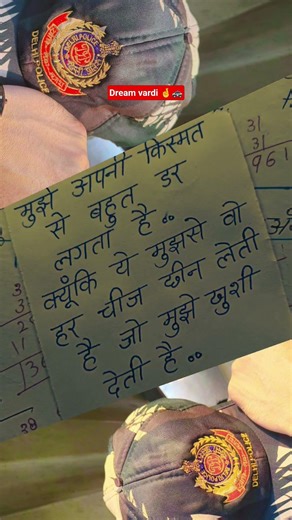 DELHI POLICE
Dream vardi 🤞🚓
मुझे अपनी किस्मत
से बहुत डर
लगता है ॰॰
क्यूँकि ये मुझसे वो
हर चीज छीन लेती
है जो मुझे खुशी
देती है ॰॰
31
31
961
28
DELHI POLICE